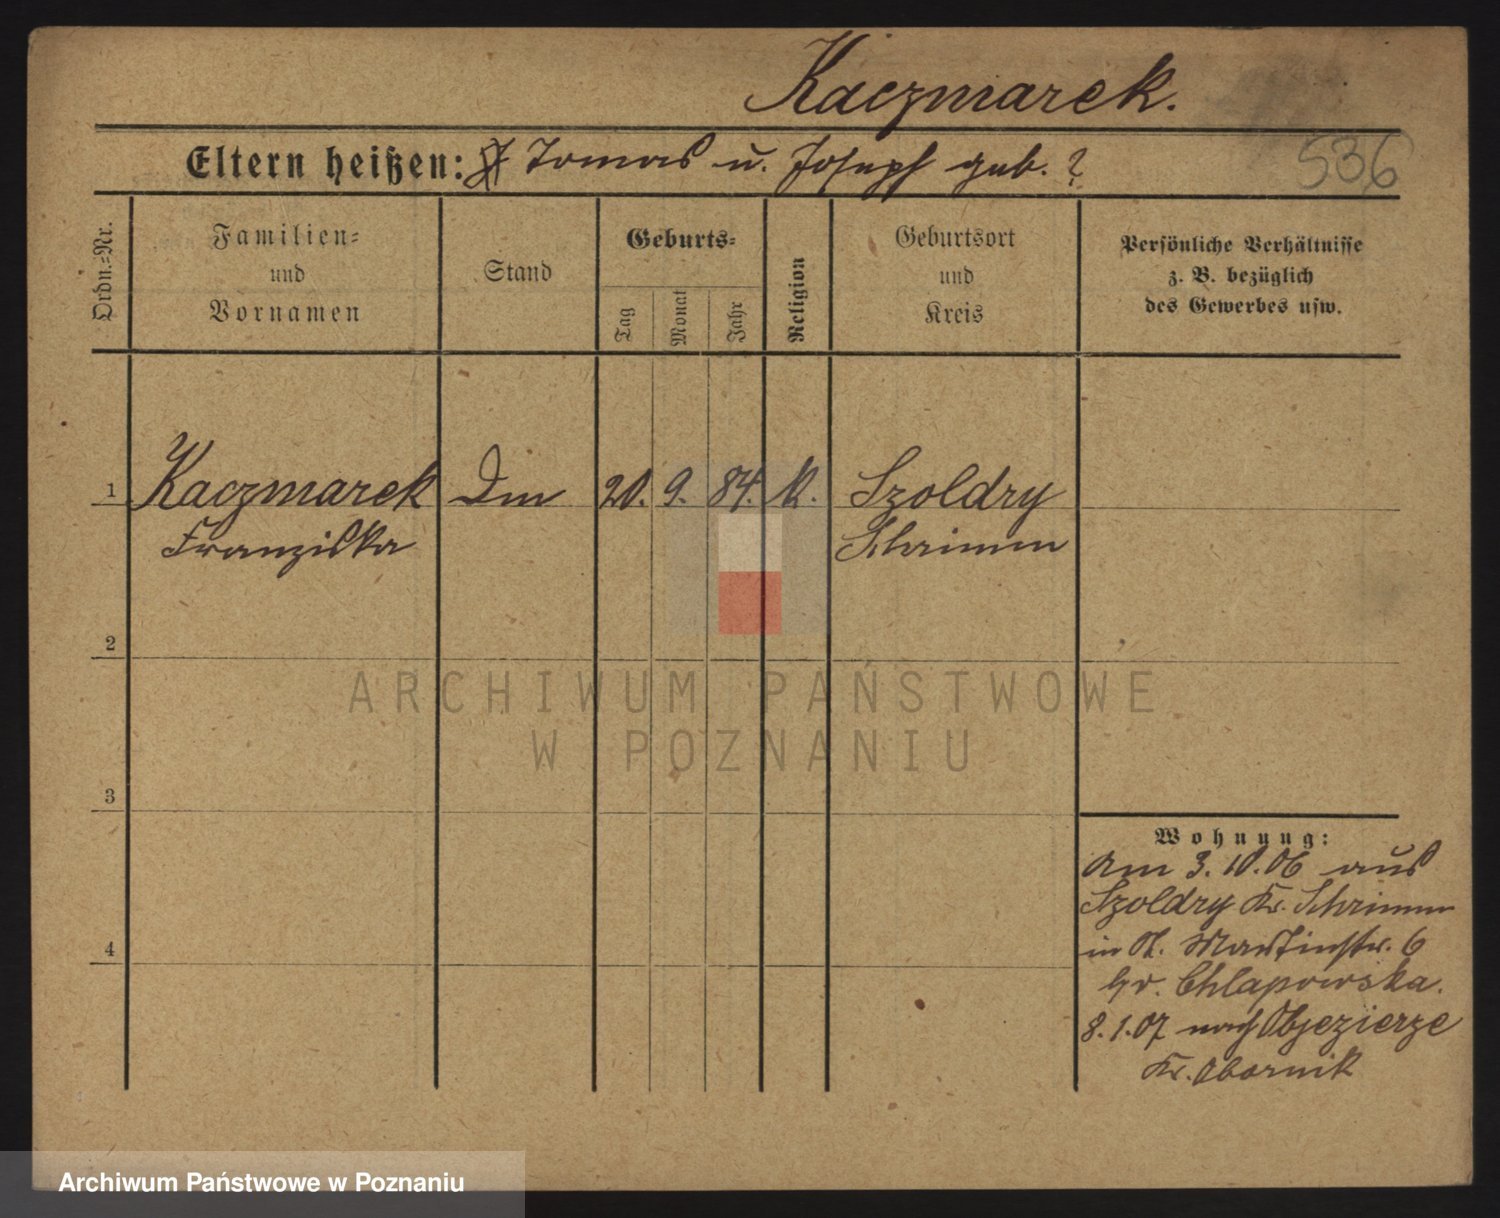 Kaczmarek.
Eltern heißen: Tomas u. Joseph geb. ?
536
Ordn.-Nr.
Familien-
und
Vornamen
Stand
Geburts-
Tag
Monat
Jahr
Religion
Geburtsort
und
Kreis
Persönliche Verhältnisse
z. B. bezüglich
des Gewerbes usw.
1 Kaczmarek Dm 20. 9. 84. K. Szoldry
Franziska Schrimm
2
3
4
Wohnung:
Am 3.10.06 aus
Szoldry Kr. Schrimm
in St. Martinstr. 6
Chlapowska.
8.1.07 nach Objezierze
Kr. Obornik
ARCHIWUM PAŃSTWOWE
W POZNANIU
Archiwum Państwowe w Poznaniu